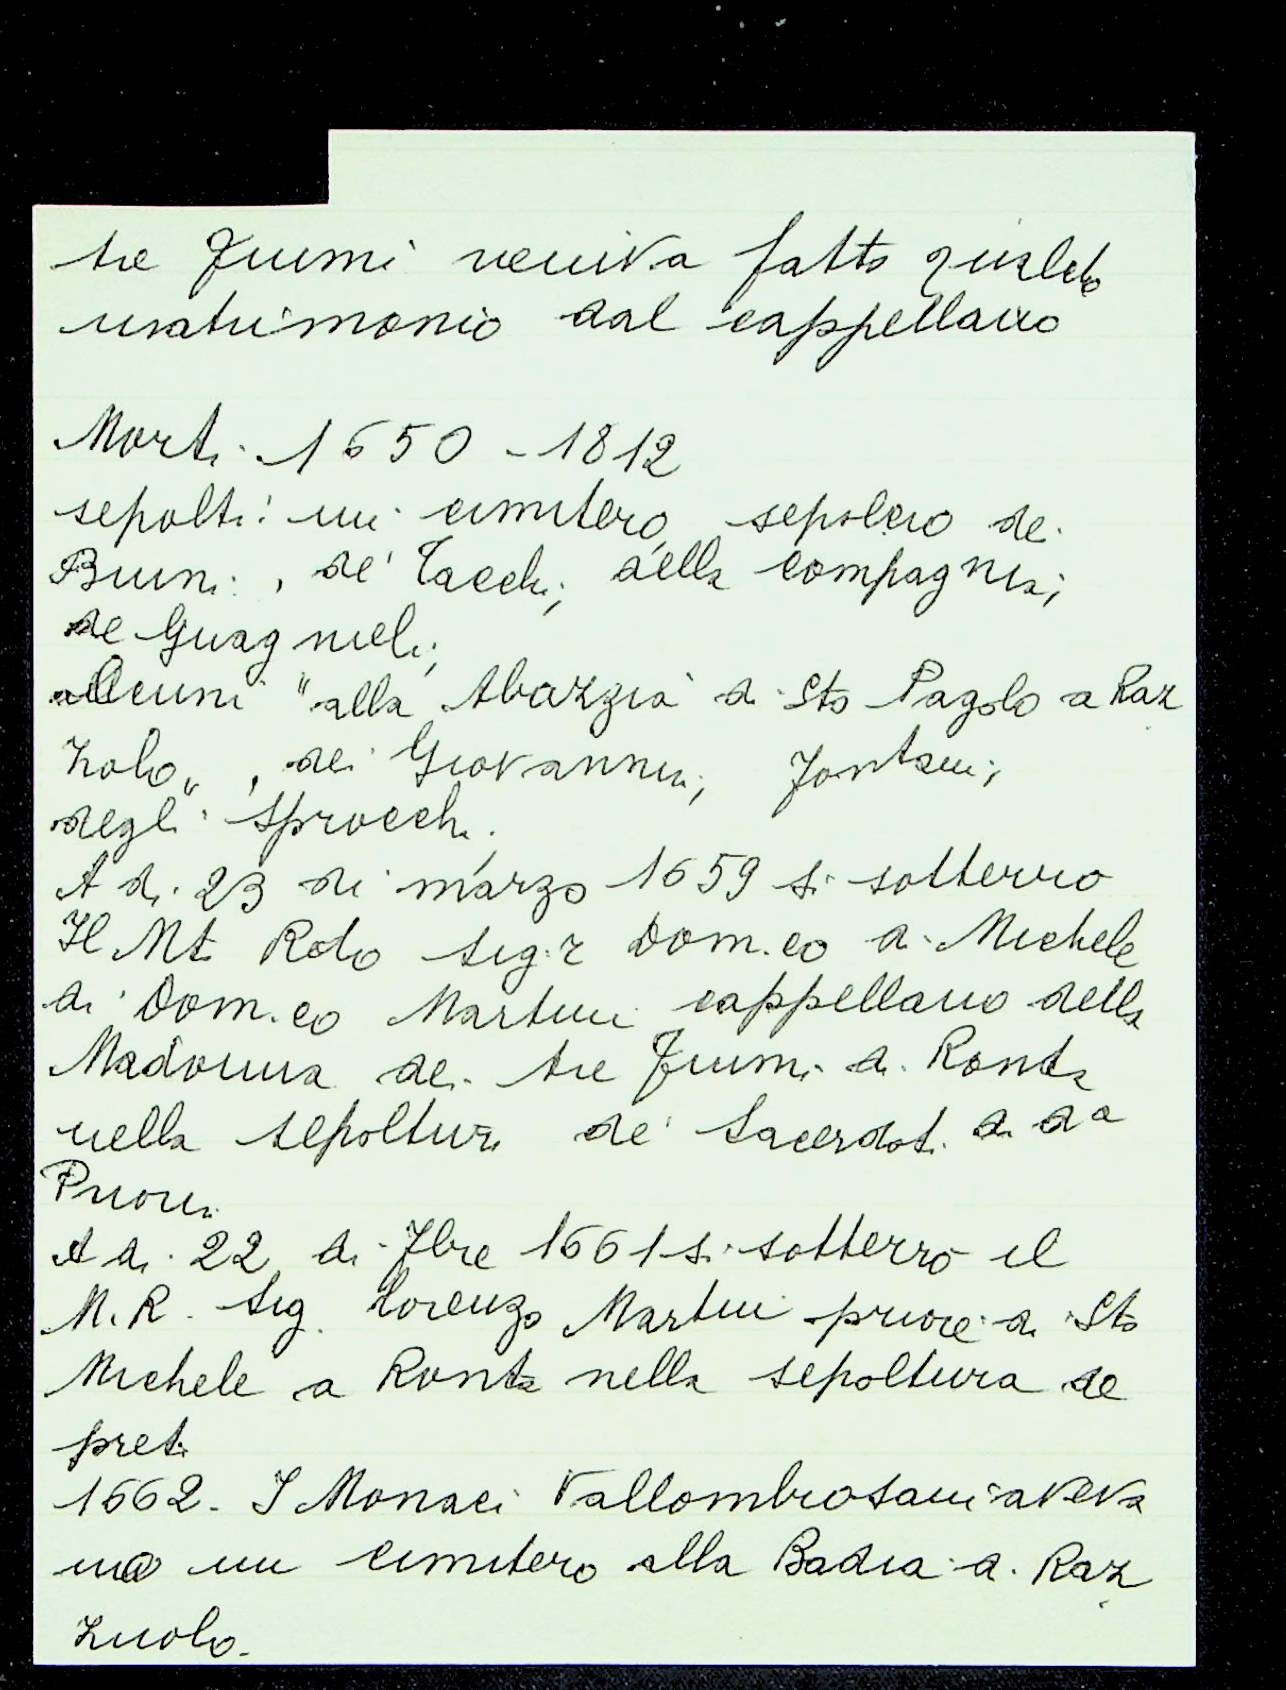 tre Fiumi veniva fatto qualche
matrimonio dal cappellano
Morti 1650 - 1812
sepolti: in cimitero, sepolcro dei
Buini, de' Tacchi, della compagnia;
de Guagnieli;
alcuni "alla Abazzia di Sto Pagolo a Raz
zolo", dei Giovannini, Fontani;
degli Sprocchi.
A di 23 di marzo 1659 si sotterro
Il Mt Rdo Sig.r Dom.co di Michele
di Dom.co Martini cappellano della
Madonna dei tre Fiumi di Ronta
nella sepoltura de' Sacerdoti di da
Prioria
A di 22 di 7bre 1661 si sotterrò il
M.R. Sig. Lorenzo Martini priore di Sto
Michele a Ronta nella sepoltura de
preti
1662 - I Monaci Vallombrosani aveva
no un cimitero alla Badia di Raz
zuolo.